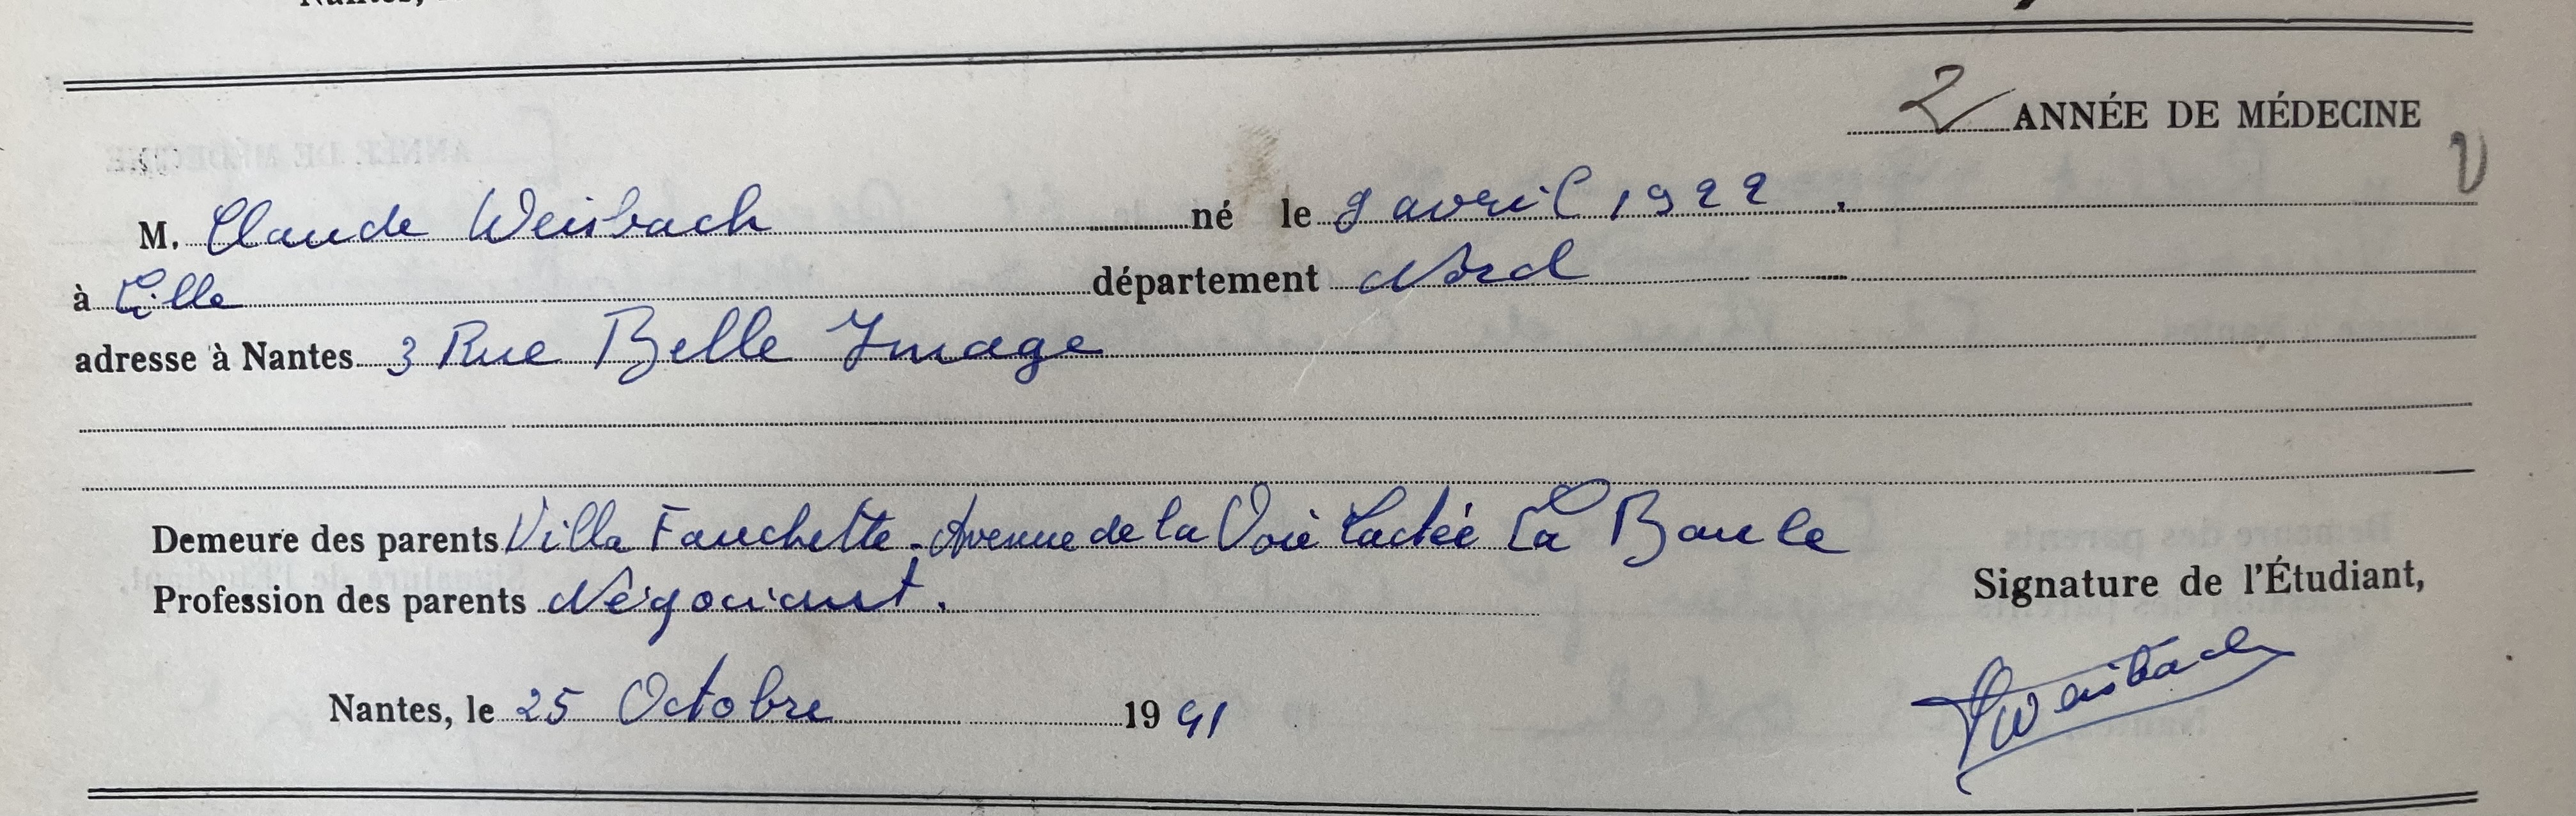 2 ANNÉE DE MÉDECINE
M. Claude Weisbach né le 9 avril 1922.
à Lille département Nord
adresse à Nantes 3 Rue Belle Image
Demeure des parents Villa Fauchette. Avenue de la Voie Lactée La Baule
Profession des parents Négociant.
Signature de l'Étudiant,
Nantes, le 25 Octobre 1941
Weisbach